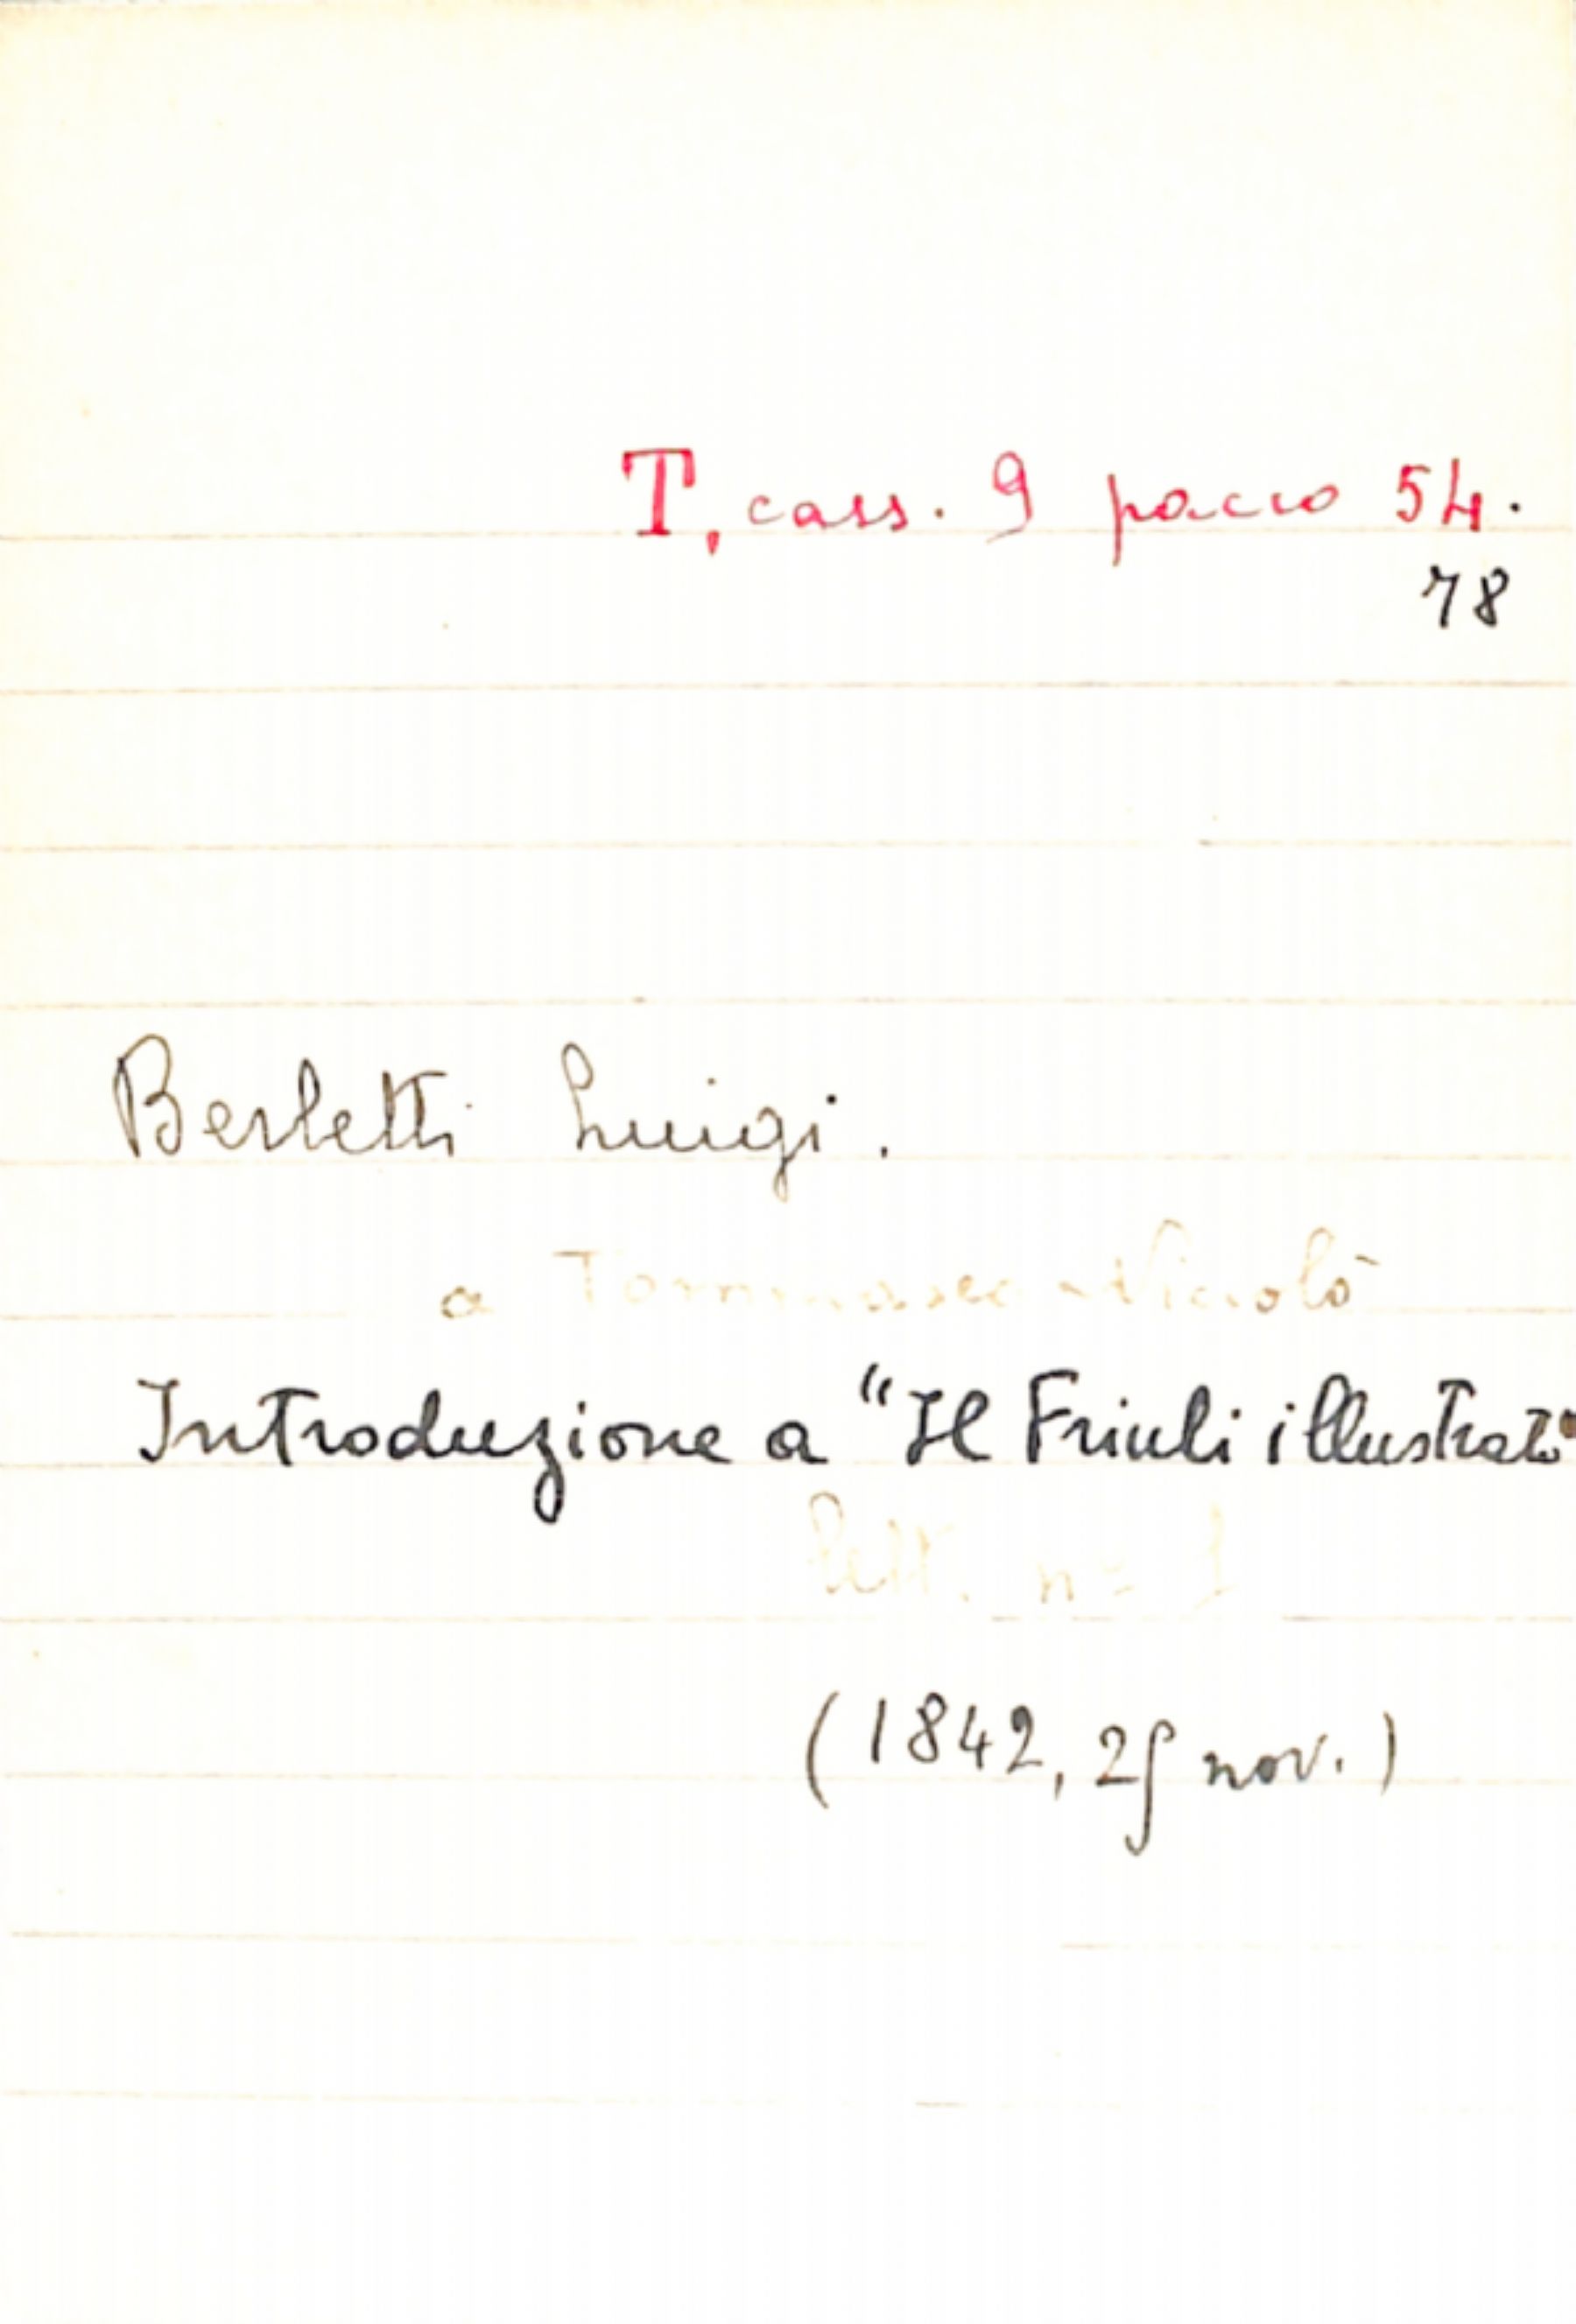 T, cass. 9 pacco 54.
78
Berletti Luigi.
a Tommaseo Nicolò
Introduzione a "Il Friuli illustrato"
lett. n= 1
(1842, 25 nov.)